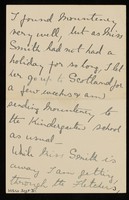 I found Mounteney
very well, but as Miss
Smith had not had a
holiday for so long, I let
her go up to Scotland for
a few weeks & am
sending Mounteney to
the Kindergarten school
as usual —
While Miss Smith is
away I am getting
through the